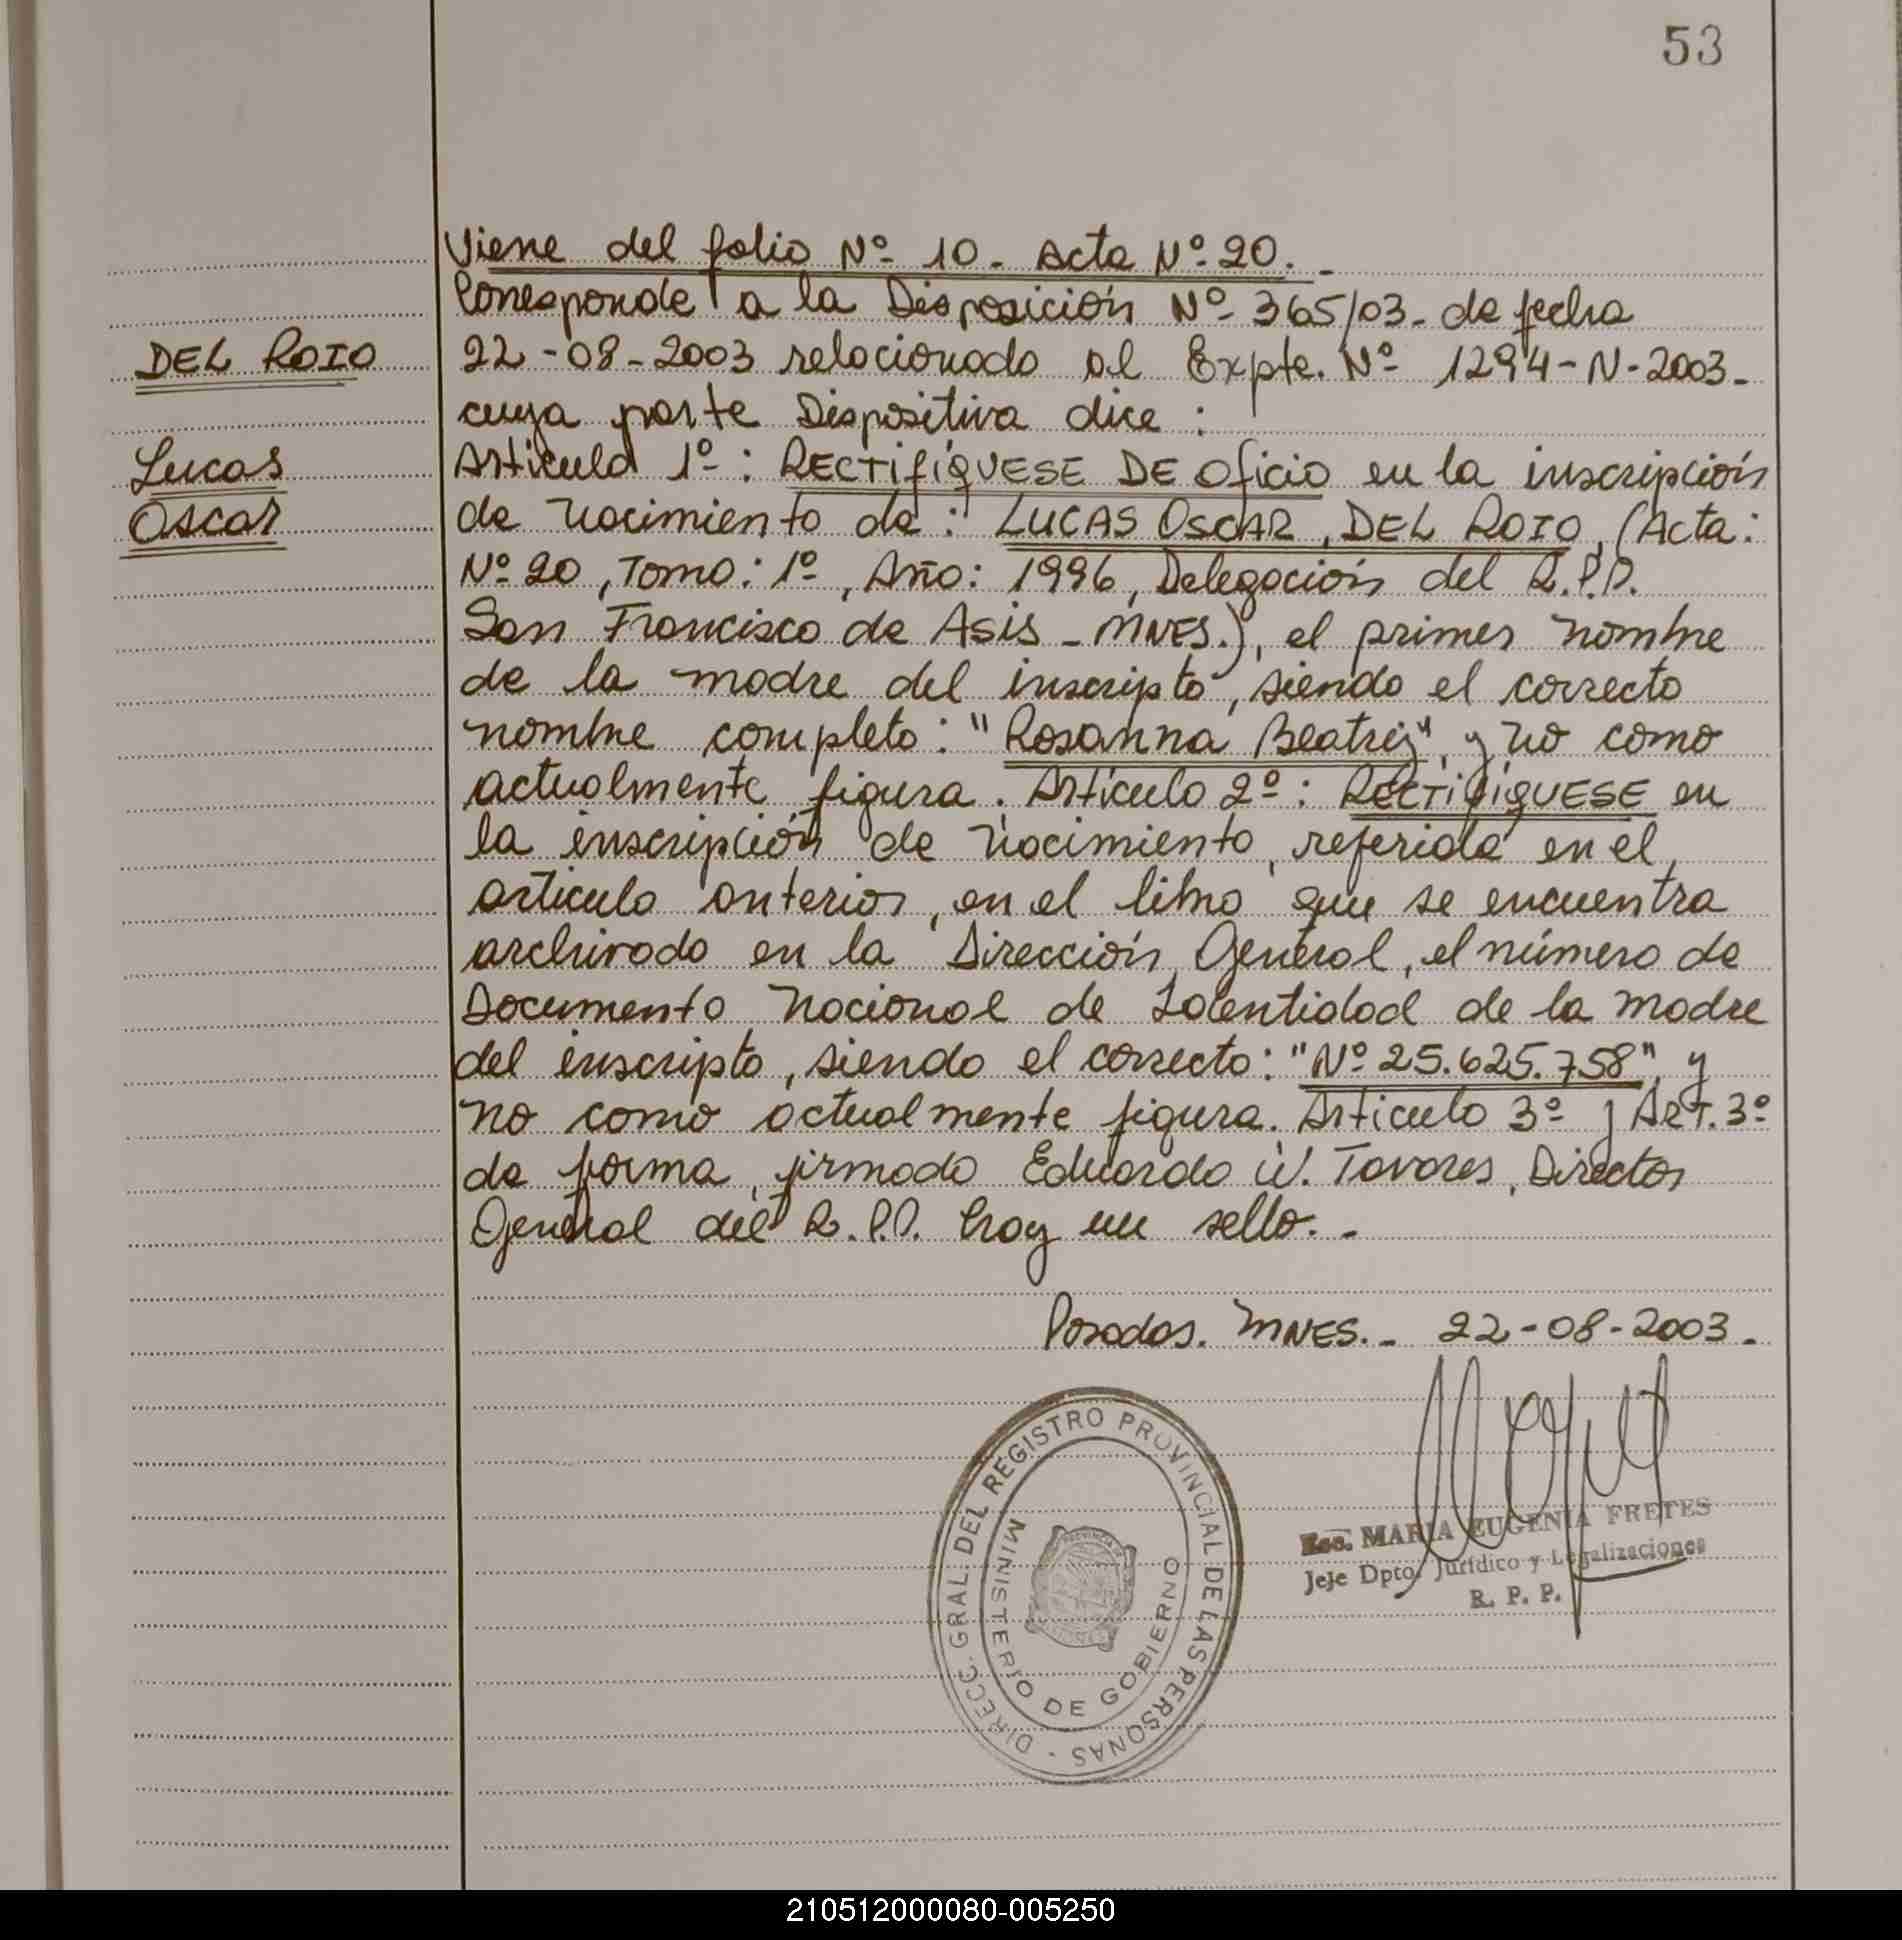 53
Viene del folio Nº 10. Acta Nº 20. -
Corresponde a la Disposición Nº 365/03 - de fecha
DEL ROIO
22-08-2003 relacionado al Expte. Nº 1294-N-2003 -
cuya parte Dispositiva dice :
Lucas
Articulo 1º : RECTIFÍQUESE DE Oficio en la inscripción
Oscar
de nacimiento de : LUCAS OSCAR, DEL ROIO, (Acta :
Nº 20, Tomo : 1º, Año : 1996, Delegación del R.P.P.
San Francisco de Asis - MNES.), el primer nombre
de la madre del inscripto, siendo el correcto
nombre completo : "Rosanna Beatriz", y no como
actualmente figura. Artículo 2º : RECTIFÍQUESE en
la inscripción de nacimiento, referida en el,
articulo anterior, en el libro que se encuentra
archivado en la Dirección General, el número de
Documento Nacional de Identidad de la madre
del inscripto, siendo el correcto : "Nº 25.625.758", y
no como actualmente figura. Articulo 3º y Art. 3º
de forma, firmado Eduardo W. Tavares, Director
General del R.P.P. hay un sello. -
Posadas. MNES. - 22-08-2003 -
DIRECC. GRAL. DEL REGISTRO PROVINCIAL DE LAS PERSONAS -
MINISTERIO DE GOBIERNO
Esc. MARIA EUGENIA FRETES
Jefe Dpto. Jurídico y Legalizaciones
R. P. P.
210512000080-005250